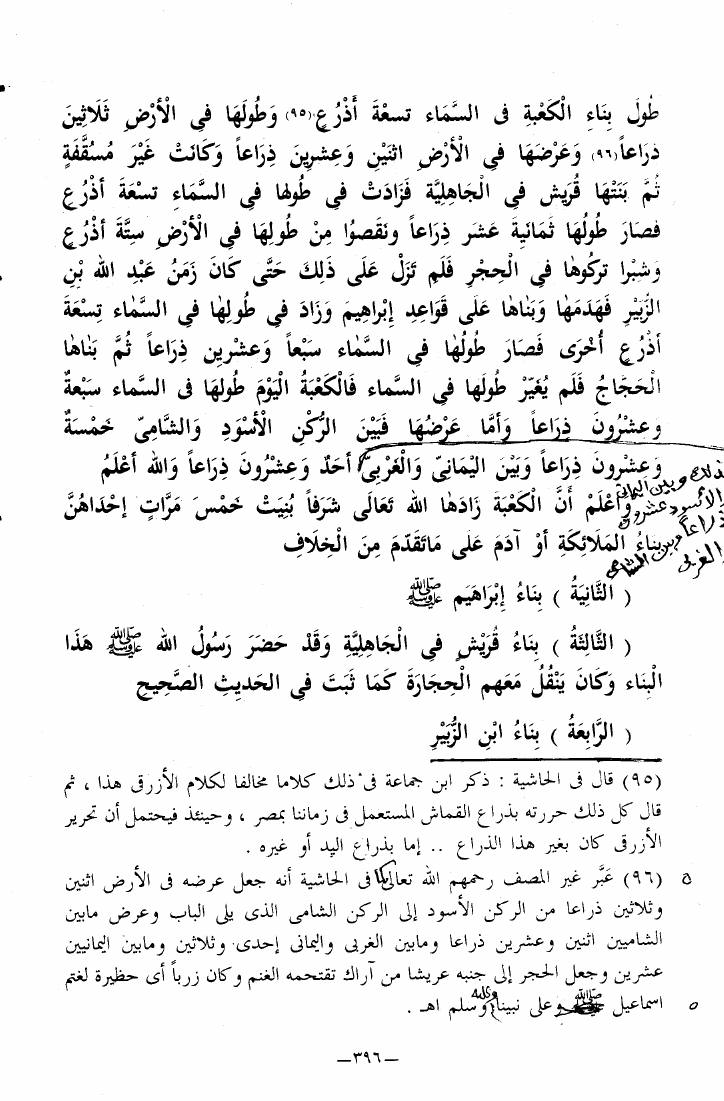 طُولَ بِنَاءِ الْكَعْبةِ فى السَّمَاءِ تسعْةَ أَذْرُعٍ (٩٥) وَطُولَهَا فِي الْأَرْضِ ثَلَاثِينَ
ذرَاعاً (٩٦) وَعَرْضَهَا فِي الْأَرْضِ اثْنَيْنِ وَعِشْرِينَ ذِرَاعاً وَكَانَتْ غَيْرَ مُسَقَّفَةٍ
ثُمَّ بَنَتْهَا قُرَيْشٌ فِي الْجَاهِليَّةِ فَزَادَتْ فِي طُولِهَا فِي السَّمَاءِ تسْعَةَ أذْرُعٍ
فصَارَ طُولُهَا ثَمَانيَةَ عَشَرَ ذِرَاعاً ونَقَصُوا مِنْ طُولِهَا فِي الْأَرْضِ ستَّةَ أذْرُعٍ
وَشبْرا تركُوهَا فِي الْحِجْرِ فَلَمِ تَزَلْ عَلَى ذَلِكَ حَتَّى كَانَ زَمَنُ عَبْدِ الله بْنِ
الزُّبَيْرِ فَهَدَمَهَا وَبَنَاهَا عَلَى قَوَاعِدِ إِبْراهِيمَ وَزَادَ فِي طُولِهَا فِي السَّمَاء تِسْعَةَ
أذْرُعٍ أُخْرَى فَصَارَ طُولُهَا فِي السَّمَاء سَبْعاً وَعشْرِينِ ذِرَاعاً ثُمَّ بَنَاهَا
الْحَجَاجُ فَلَمِ يُغَيِّرْ طُولَها فِي السَّماء فَالْكَعْبَةُ الْيَوْمَ طُولهَا فى السماء سَبْعةٌ
وَعشْرُونَ ذِرَاعاً وَأمَّا عَرْضُهَا فَبَيْنَ الرُّكْنِ الْأَسْوَدِ وَالشَّامِىِّ خَمْسَةٌ
وَعشْرُونَ ذِرَاعاً وَبَيْنَ اليَمَانِىّ وَالْغَرْبِىِّ أَحَدٌ وَعِشْرُونَ ذِرَاعاً وَالله أعْلَمُ
كذلك وبين اليماني
والأسود عشرون
ذراعاً وبين الشامي
والغربي
وَأعْلَمْ أنَّ الْكَعْبَةَ زَادَهَا الله تَعَالَى شَرَفاً بُنِيَتْ خَمْسَ مَرَّاتٍ إحْدَاهُنَّ
بِنَاءُ المَلَائِكَةِ أوْ آدَمَ عَلَى مَاتَقَدّمَ مِنَ الْخِلَافِ
( الثَّانِيَةُ ) بِنَاءُ إبْرَاهَيِم ﷺ
( الثَّالِثَةُ ) بِنَاءُ قُرَيْشٍ فِي الْجَاهِليَّةِ وَقَدْ حَضَرَ رَسُولُ الله ﷺ هَذَا
الْبِنَاء وَكَانَ يَنْقُلُ مَعَهم الْحِجَارَةَ كَمَا ثَبَتَ فِي الحَدِيثِ الصَّحِيحِ
( الرَّابِعَةُ ) بِنَاءُ ابْنِ الزُّبَيْرِ
(٩٥) قال فى الحاشية : ذكر ابن جماعة فى ذلك كلاما مخالفا لكلام الأزرقى هذا ، ثم
قال كل ذلك حررته بذراع القماش المستعمل فى زماننا بمصر ، وحينئذ فيحتمل أن تحرير
الأزرقى كان بغير هذا الذراع .. إما بذراع اليد أو غيره .
(٩٦) عَبَّر غير المصف رحمهم الله تعالى كما فى الحاشية أنه جعل عرضه فى الأرض اثنين
وثلاثين ذراعا من الركن الأسود إلى الركن الشامى الذى يلى الباب وعرض مابين
الشاميين اثنين وعشرين ذراعا ومابين الغربى واليمانى إحدى وثلاثين ومابين اليمانيين
عشرين وجعل الحجر إلى جنبه عريشا من آراك تقتحمه الغنم وكان زرباً أى حظيرة لغنم
اسماعيل ﷺ وعلى نبينا وآله وسلم اهـ .
—٣٩٦—